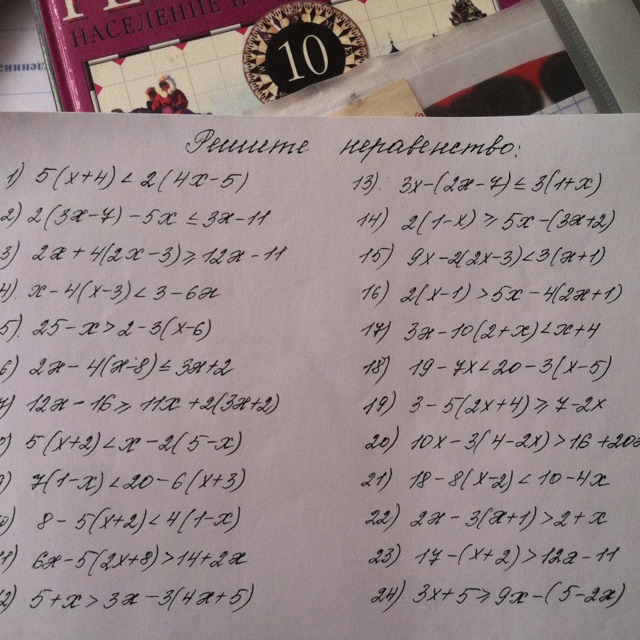 НАСЕЛЕНИЕ
10
Решите неравенство:
1) 5(x+4) < 2(4x-5)
2) 2(3x-7) - 5x ≤ 3x-11
3) 2x + 4(2x-3) ≥ 12x - 11
4) x - 4(x-3) < 3 - 6x
5) 25 - x > 2 - 3(x-6)
6) 2x - 4(x-8) ≤ 3x+2
7) 12x - 16 ≥ 11x + 2(3x+2)
8) 5(x+2) < x - 2(5-x)
9) 7(1-x) < 20 - 6(x+3)
10) 8 - 5(x+2) < 4(1-x)
11) 6x - 5(2x+8) > 14+2x
12) 5+x > 3x - 3(4x+5)
13) 3x-(2x-7) ≤ 3(1+x)
14) 2(1-x) ≥ 5x-(3x+2)
15) 9x-2(2x-3) < 3(x+1)
16) 2(x-1) > 5x-4(2x+1)
17) 3x-10(2+x) < x+4
18) 19-7x < 20-3(x-5)
19) 3-5(2x+4) ≥ 7-2x
20) 10x-3(4-2x) > 16+20x
21) 18-8(x-2) < 10-4x
22) 2x-3(x+1) > 2+x
23) 17-(x+2) > 12x-11
24) 3x+5 ≥ 9x-(5-2x)